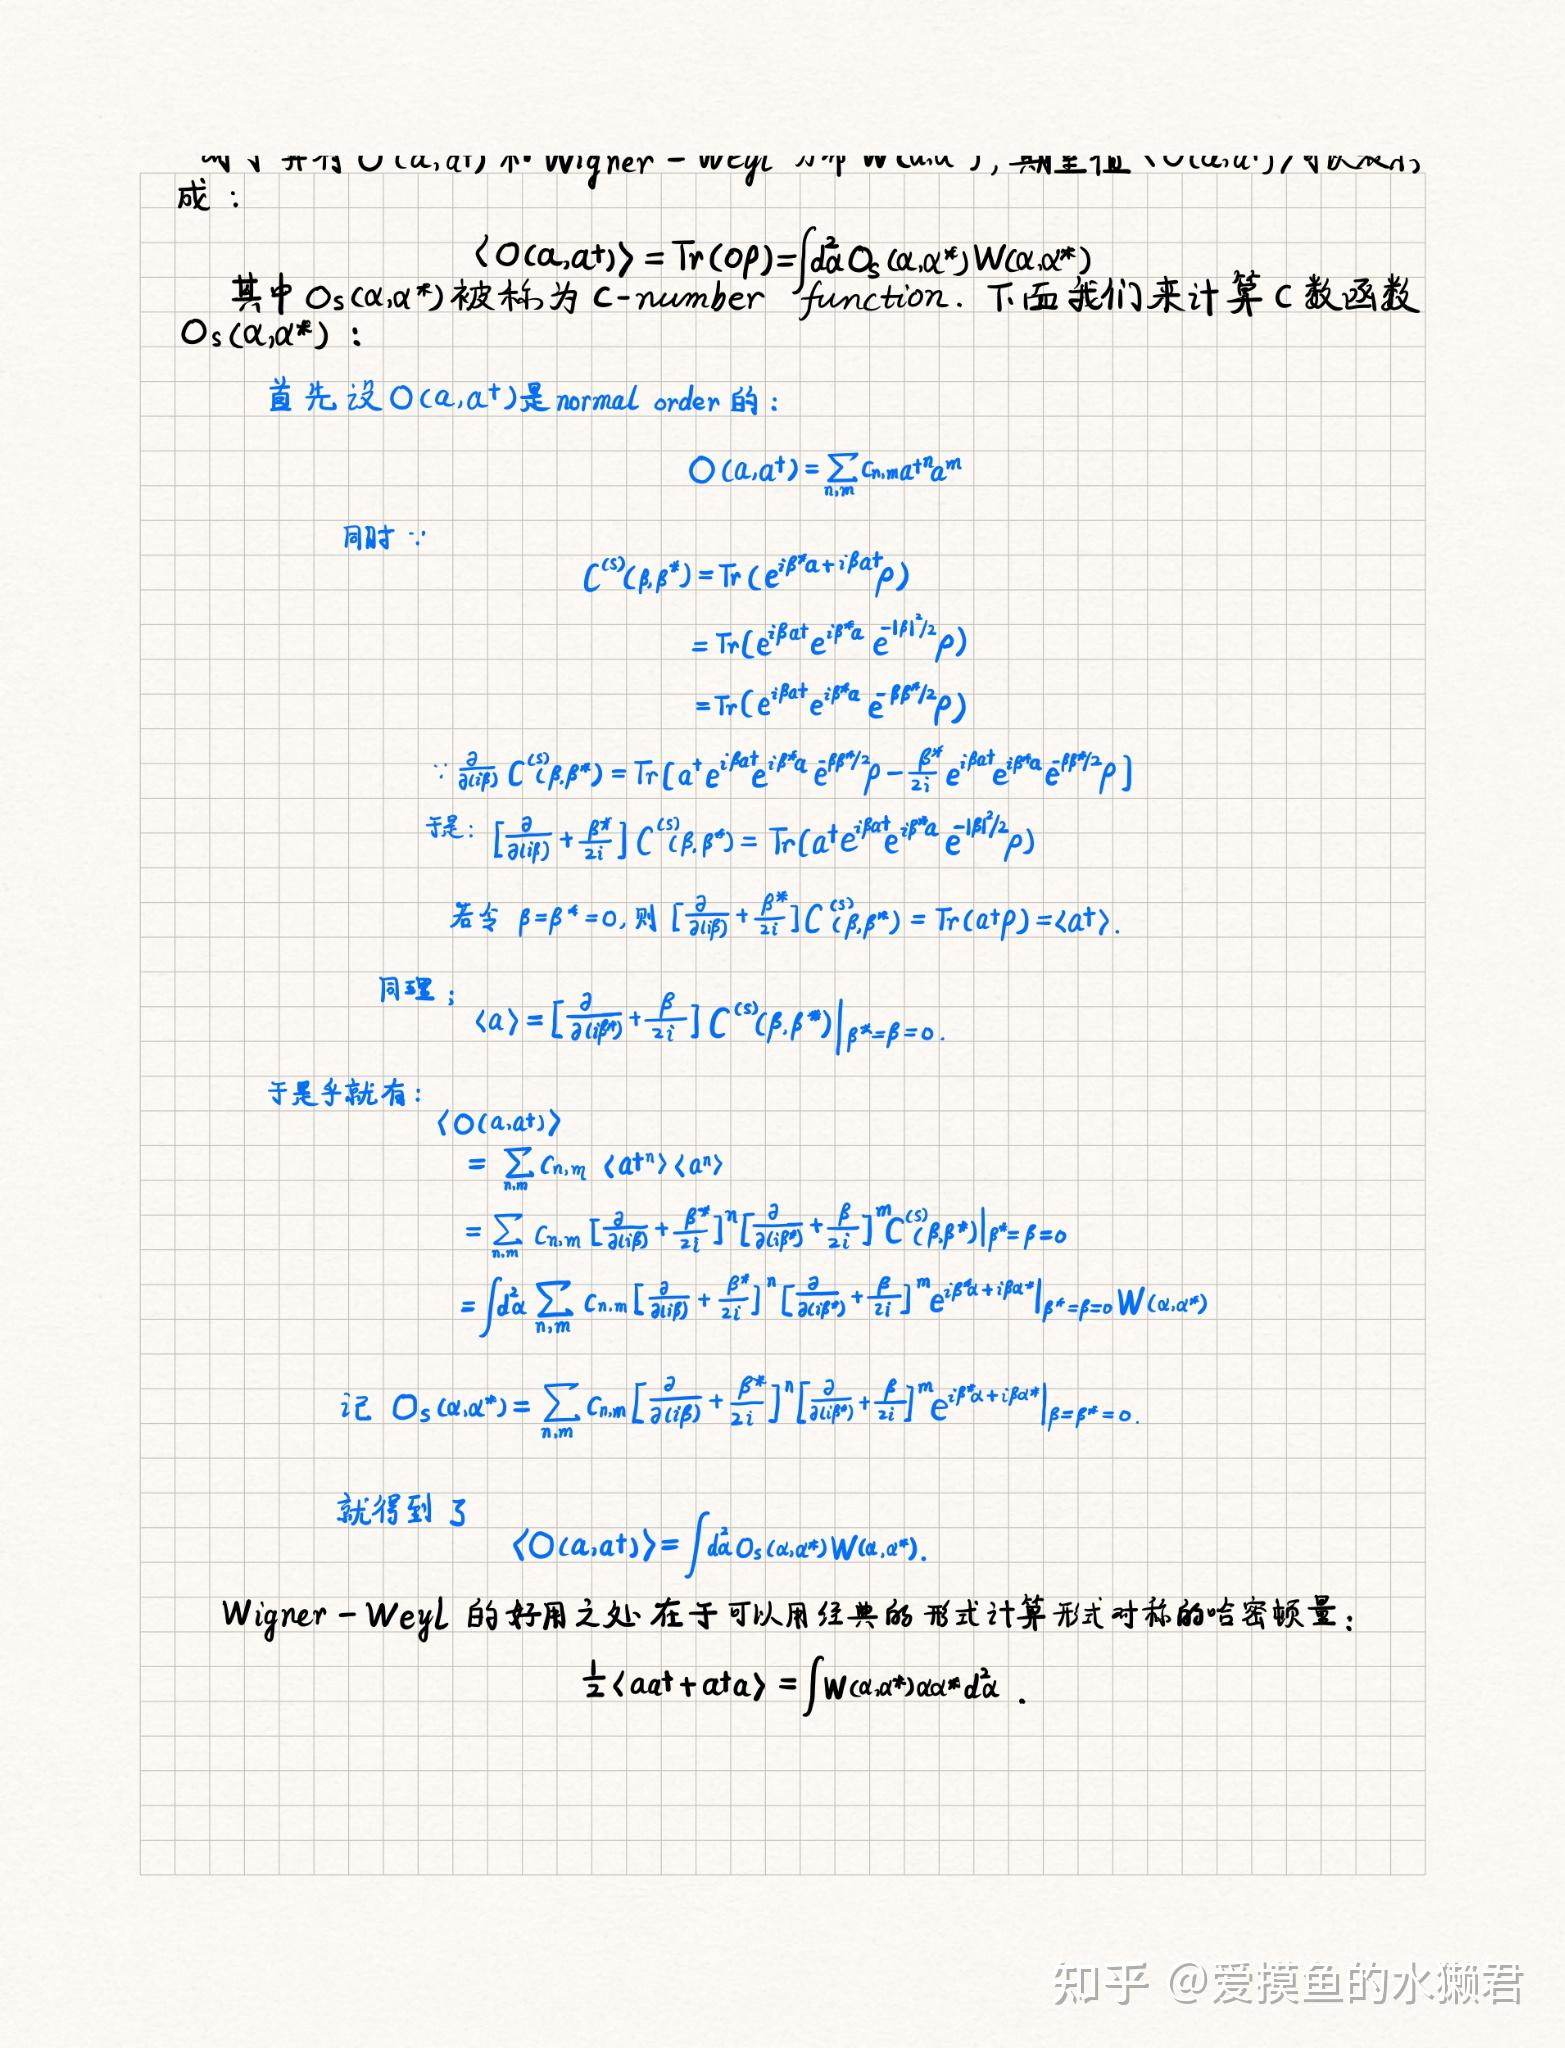 成：
⟨O(a,a†)⟩ = Tr(Oρ) = ∫d²α Oₛ(α,α*) W(α,α*)
其中 Oₛ(α,α*) 被称为 C-number function. 下面我们来计算 C 数函数
Oₛ(α,α*)：
首先设 O(a,a†) 是 normal order 的：
O(a,a†) = ∑_{n,m} C_{n,m} a†ⁿ aᵐ
同时 ∵
C^{(s)}(β,β*) = Tr(e^{iβ*a+iβa†} ρ)
= Tr(e^{iβa†} e^{iβ*a} e^{-|β|²/2} ρ)
= Tr(e^{iβa†} e^{iβ*a} e^{-ββ*/2} ρ)
∵ ∂/∂(iβ) C^{(s)}(β,β*) = Tr[a† e^{iβa†} e^{iβ*a} e^{-ββ*/2} ρ - β*/2i e^{iβa†} e^{iβ*a} e^{-ββ*/2} ρ]
于是: [∂/∂(iβ) + β*/2i] C^{(s)}(β,β*) = Tr(a† e^{iβa†} e^{iβ*a} e^{-|β|²/2} ρ)
若令 β=β*=0, 则 [∂/∂(iβ) + β*/2i] C^{(s)}(β,β*) = Tr(a†ρ) = ⟨a†⟩.
同理;
⟨a⟩ = [∂/∂(iβ*) + β/2i] C^{(s)}(β,β*)|_{β*=β=0}.
于是乎就有:
⟨O(a,a†)⟩
= ∑_{n,m} C_{n,m} ⟨a†ⁿ⟩⟨aⁿ⟩
= ∑_{n,m} C_{n,m} [∂/∂(iβ) + β*/2i]ⁿ [∂/∂(iβ*) + β/2i]ᵐ C^{(s)}(β,β*)|_{β*=β=0}
= ∫d²α ∑_{n,m} C_{n,m} [∂/∂(iβ) + β*/2i]ⁿ [∂/∂(iβ*) + β/2i]ᵐ e^{iβ*α+iβα*}|_{β*=β=0} W(α,α*)
记 Oₛ(α,α*) = ∑_{n,m} C_{n,m} [∂/∂(iβ) + β*/2i]ⁿ [∂/∂(iβ*) + β/2i]ᵐ e^{iβ*α+iβα*}|_{β=β*=0}.
就得到了
⟨O(a,a†)⟩ = ∫d²α Oₛ(α,α*) W(α,α*).
Wigner-Weyl 的好用之处在于可以用经典的形式计算形式对称的哈密顿量：
½⟨aa†+a†a⟩ = ∫W(α,α*)αα* d²α .
知乎 @爱摸鱼的水獭君